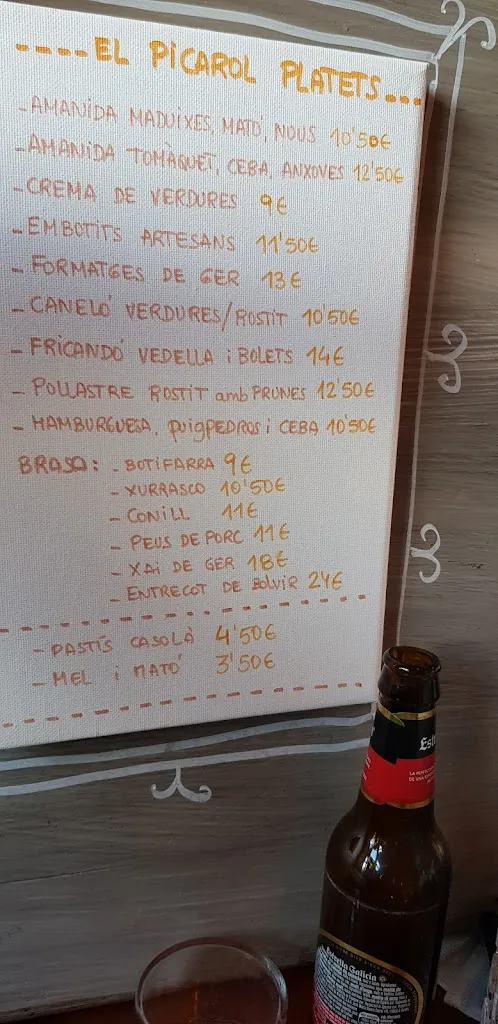 ----EL PICAROL PLATETS---
-AMANIDA MADUIXES, MATÓ, NOUS 10'50€
-AMANIDA TOMÀQUET, CEBA, ANXOVES 12'50€
-CREMA DE VERDURES 9€
-EMBOTITS ARTESANS 11'50€
-FORMATGES DE GER 13€
-CANELÓ VERDURES/ROSTIT 10'50€
-FRICANDÓ VEDELLA i BOLETS 14€
-POLLASTRE ROSTIT amb PRUNES 12'50€
-HAMBURGUESA. puigpedros i CEBA 10'50€
BRASA: -BOTIFARRA 9€
-XURRASCO 10'50€
-CONILL 11€
-PEUS DE PORC 11€
-XAI DE GER 18€
-ENTRECOT DE BOLVIR 24€
-PASTÍS CASOLÀ 4'50€
-MEL i MATÓ 3'50€
Estrella Galicia